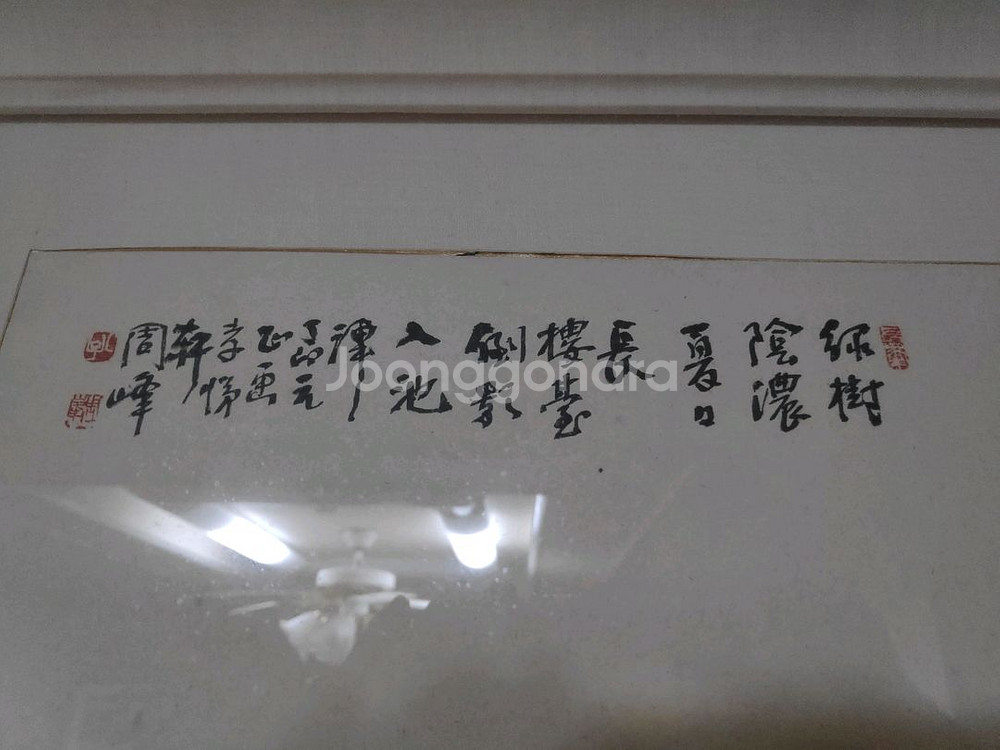 綠樹
陰濃
夏日
長
樓臺
倒影
入池
丁卯元
正畫
孝悌
軒
周峯
Joonggonara